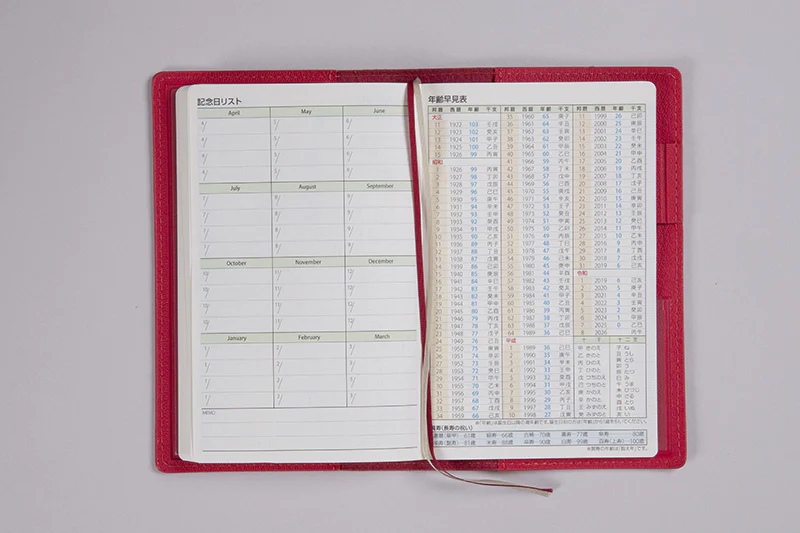 記念日リスト
April May June
4/ 5/ 6/
4/ 5/ 6/
4/ 5/ 6/
4/ 5/ 6/
July August September
7/ 8/ 9/
7/ 8/ 9/
7/ 8/ 9/
7/ 8/ 9/
October November December
10/ 11/ 12/
10/ 11/ 12/
10/ 11/ 12/
10/ 11/ 12/
January February March
1/ 2/ 3/
1/ 2/ 3/
1/ 2/ 3/
1/ 2/ 3/
MEMO
年齢早見表
邦暦 西暦 年齢 干支
大正
11 1922 103 壬戌
12 1923 102 癸亥
13 1924 101 甲子
14 1925 100 乙丑
15 1926 99 丙寅
昭和
1 1926 99 丙寅
2 1927 98 丁卯
3 1928 97 戊辰
4 1929 96 己巳
5 1930 95 庚午
6 1931 94 辛未
7 1932 93 壬申
8 1933 92 癸酉
9 1934 91 甲戌
10 1935 90 乙亥
11 1936 89 丙子
12 1937 88 丁丑
13 1938 87 戊寅
14 1939 86 己卯
15 1940 85 庚辰
16 1941 84 辛巳
17 1942 83 壬午
18 1943 82 癸未
19 1944 81 甲申
20 1945 80 乙酉
21 1946 79 丙戌
22 1947 78 丁亥
23 1948 77 戊子
24 1949 76 己丑
25 1950 75 庚寅
26 1951 74 辛卯
27 1952 73 壬辰
28 1953 72 癸巳
29 1954 71 甲午
30 1955 70 乙未
31 1956 69 丙申
32 1957 68 丁酉
33 1958 67 戊戌
34 1959 66 己亥
邦暦 西暦 年齢 干支
35 1960 65 庚子
36 1961 64 辛丑
37 1962 63 壬寅
38 1963 62 癸卯
39 1964 61 甲辰
40 1965 60 乙巳
41 1966 59 丙午
42 1967 58 丁未
43 1968 57 戊申
44 1969 56 己酉
45 1970 55 庚戌
46 1971 54 辛亥
47 1972 53 壬子
48 1973 52 癸丑
49 1974 51 甲寅
50 1975 50 乙卯
51 1976 49 丙辰
52 1977 48 丁巳
53 1978 47 戊午
54 1979 46 己未
55 1980 45 庚申
56 1981 44 辛酉
57 1982 43 壬戌
58 1983 42 癸亥
59 1984 41 甲子
60 1985 40 乙丑
61 1986 39 丙寅
62 1987 38 丁卯
63 1988 37 戊辰
64 1989 36 己巳
平成
1 1989 36 己巳
2 1990 35 庚午
3 1991 34 辛未
4 1992 33 壬申
5 1993 32 癸酉
6 1994 31 甲戌
7 1995 30 乙亥
8 1996 29 丙子
9 1997 28 丁丑
10 1998 27 戊寅
邦暦 西暦 年齢 干支
11 1999 26 己卯
12 2000 25 庚辰
13 2001 24 辛巳
14 2002 23 壬午
15 2003 22 癸未
16 2004 21 甲申
17 2005 20 乙酉
18 2006 19 丙戌
19 2007 18 丁亥
20 2008 17 戊子
21 2009 16 己丑
22 2010 15 庚寅
23 2011 14 辛卯
24 2012 13 壬辰
25 2013 12 癸巳
26 2014 11 甲午
27 2015 10 乙未
28 2016 9 丙申
29 2017 8 丁酉
30 2018 7 戊戌
31 2019 6 己亥
令和
1 2019 6 己亥
2 2020 5 庚子
3 2021 4 辛丑
4 2022 3 壬寅
5 2023 2 癸卯
6 2024 1 甲辰
7 2025 0 乙巳
8 2026 丙午
十干 十二支
甲 きのえ
乙 きのと
丙 ひのえ
丁 ひのと
戊 つちのえ
己 つちのと
庚 かのえ
辛 かのと
壬 みずのえ
癸 みずのと
子 ね
丑 うし
寅 とら
卯 う
辰 たつ
巳 み
午 うま
未 ひつじ
申 さる
酉 とり
戌 いぬ
亥 い
賀寿(長寿の祝い)
還暦(華甲)─61歳 緑寿─66歳 古稀─70歳 喜寿─77歳 傘寿─80歳
半寿(盤寿)─81歳 米寿─88歳 卒寿─90歳 白寿─99歳 百寿(上寿)─100歳
※賀寿の年齢は「数え年」です。